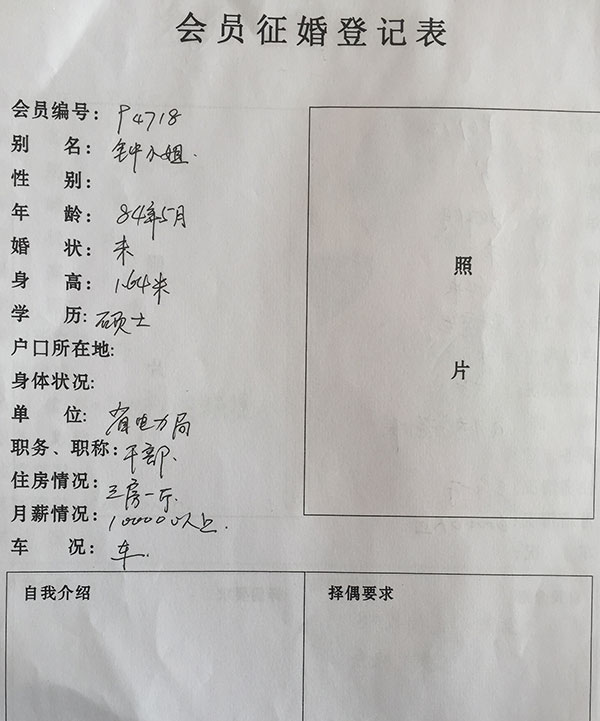 会员征婚登记表
会员编号: P4718
别 名: 钟小姐.
性 别:
年 龄: 84年5月
婚 状: 未
身 高: 1.64米
学 历: 硕士
户口所在地:
身体状况:
单 位: 省电力局
职务、职称: 干部.
住房情况: 三房一厅.
月薪情况: 10000以上.
车 况: 车.
照
片
自我介绍
择偶要求